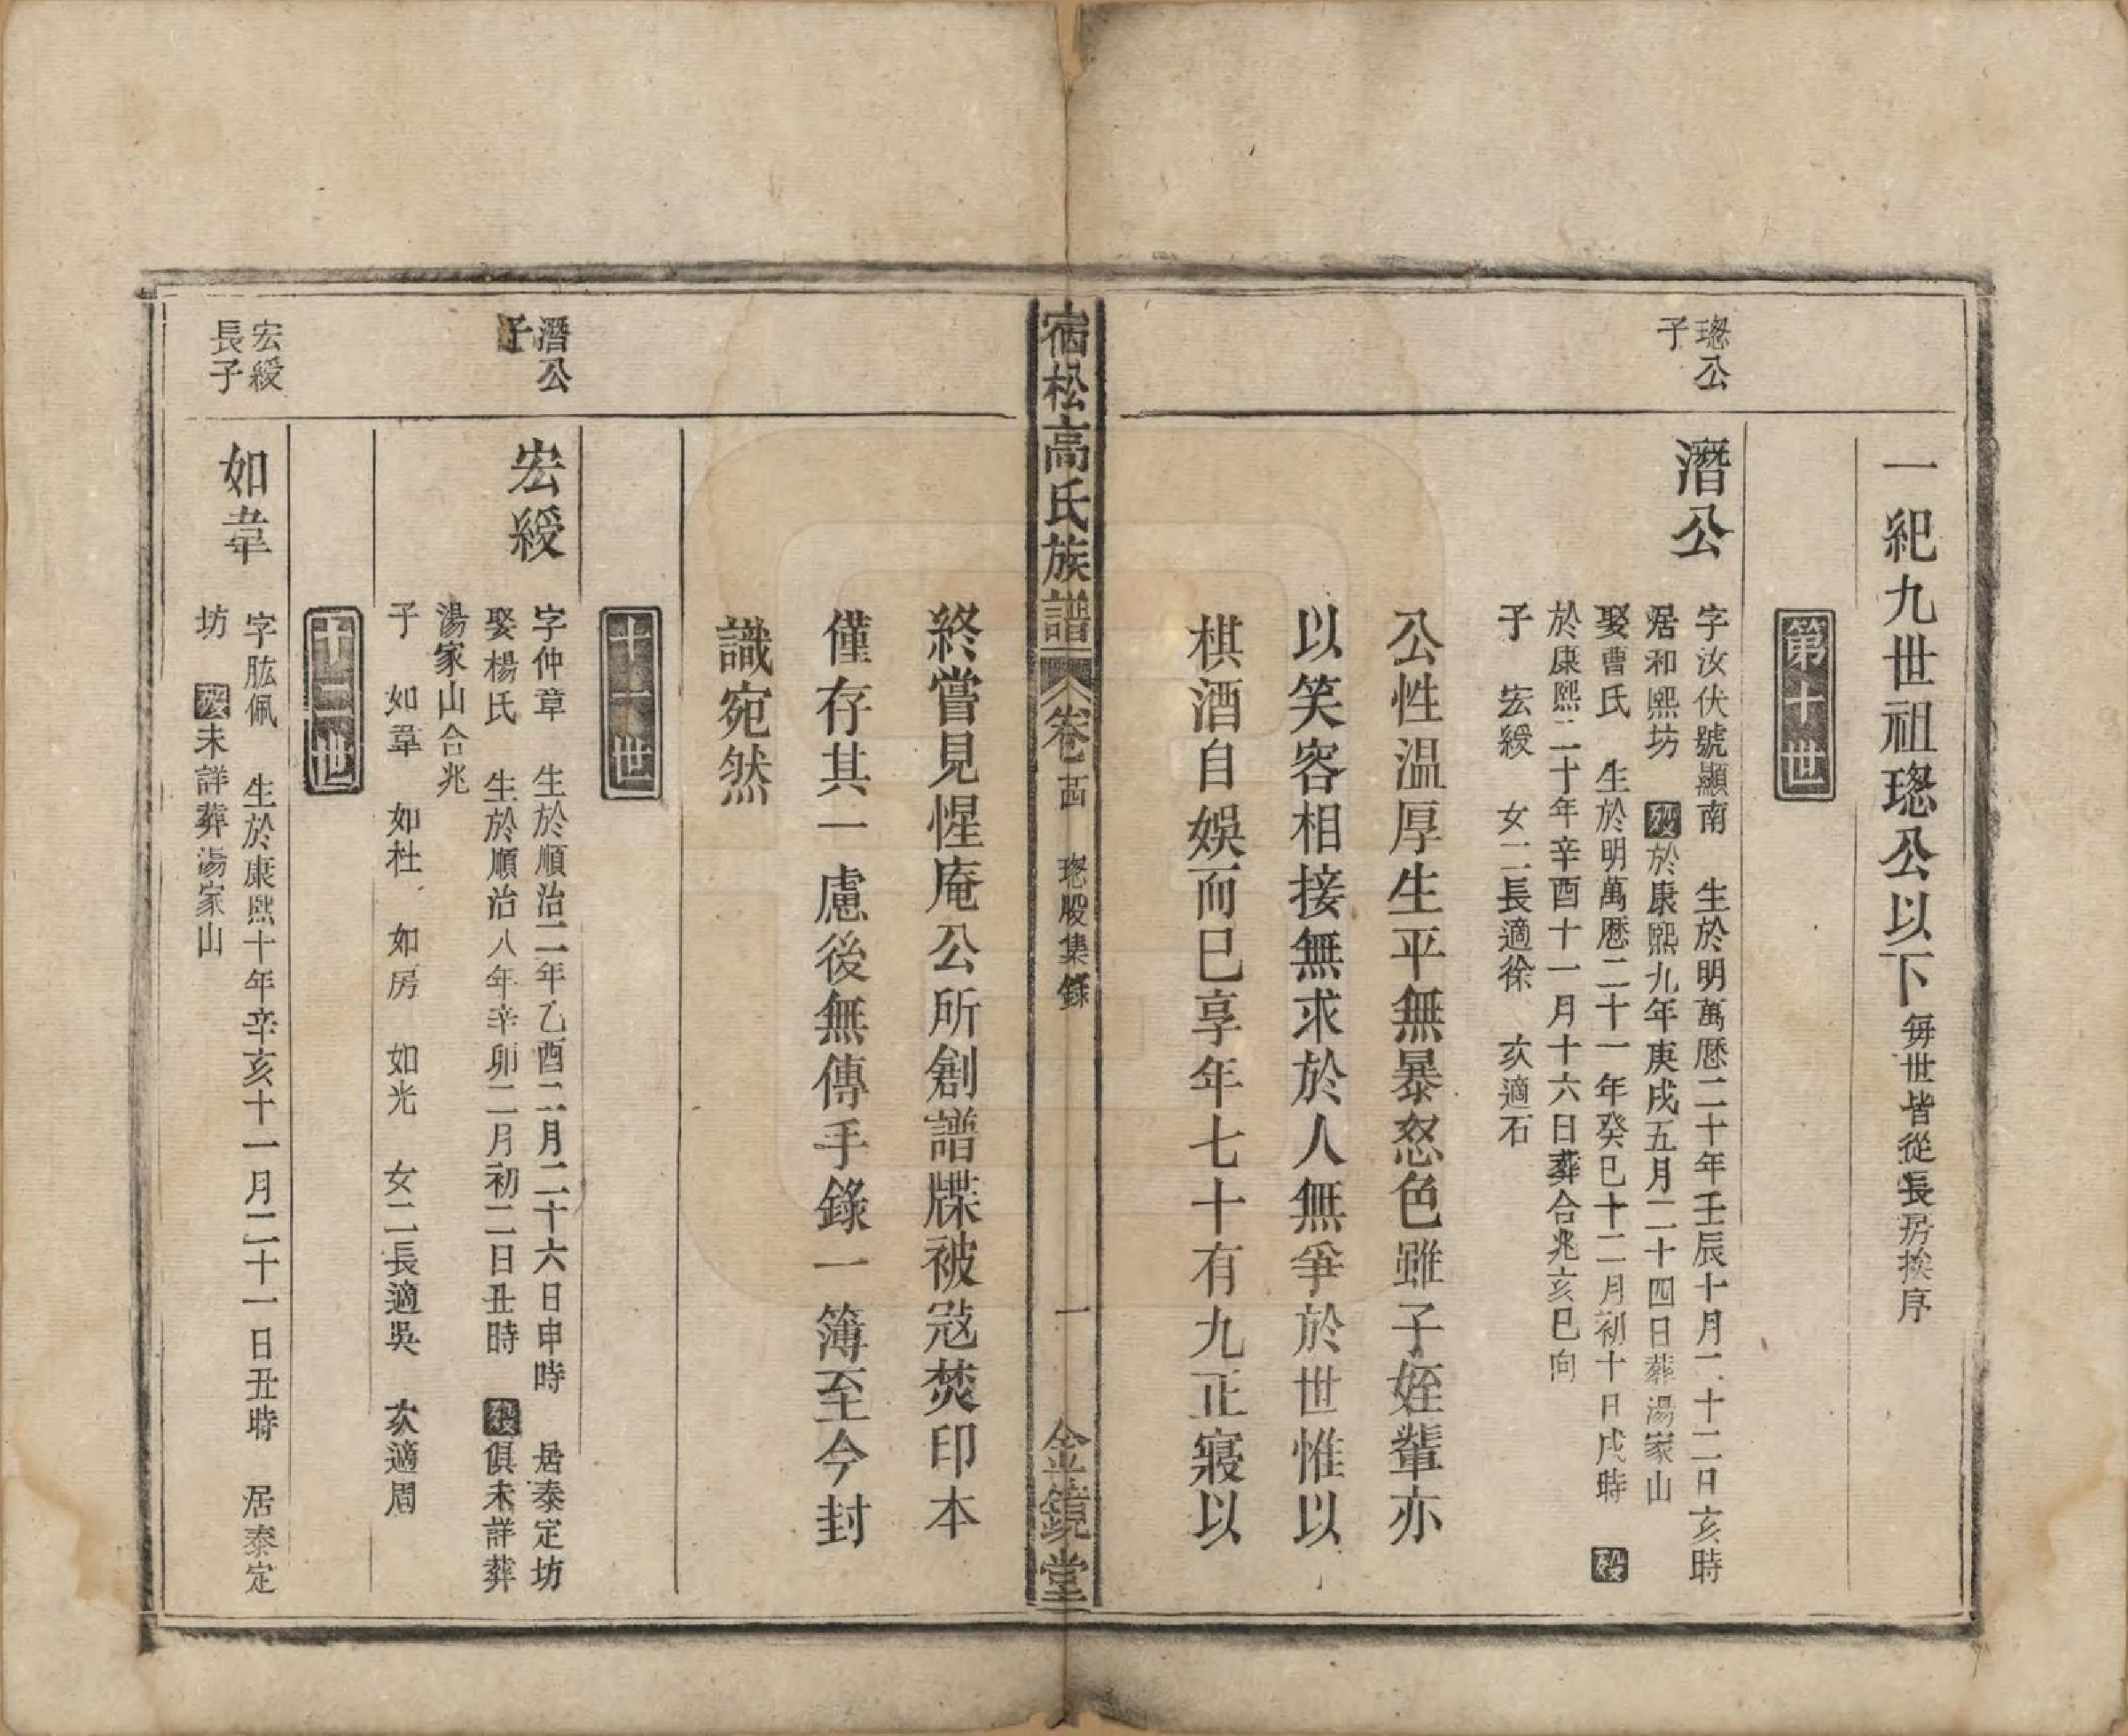 一紀九世祖璁公以下每世皆從長房挨序
第十世
璁公
子
潛公
字汝伏號顯南 生於明萬曆二十年壬辰十月二十二日亥時
居和熙坊 歿於康熙九年庚戌五月二十四日葬湯家山
娶曹氏 生於明萬曆二十一年癸巳十二月初十日戌時 歿
於康熙二十年辛酉十一月十六日葬合兆亥巳向
子 宏綬 女二長適徐 次適石
公性温厚生平無暴怒色雖子姪輩亦
以笑容相接無求於人無爭於世惟以
棋酒自娛而已享年七十有九正寢以
宿松高氏族譜 卷十四 璁股集錄 一 金鏡堂
終嘗見惺庵公所創譜牒被冦焚印本
僅存其一慮後無傳手錄一簿至今封
識宛然
十一世
潛公
子
宏綬
字仲章 生於順治二年乙酉二月二十六日申時 居泰定坊
娶楊氏 生於順治八年辛卯二月初二日丑時 歿俱未詳葬
湯家山合兆
子 如韋 如杜 如房 如光 女二長適吳 次適周
十二世
宏綬
長子
如韋
字肱佩 生於康熙十年辛亥十一月二十一日丑時 居泰定
坊 歿未詳葬湯家山